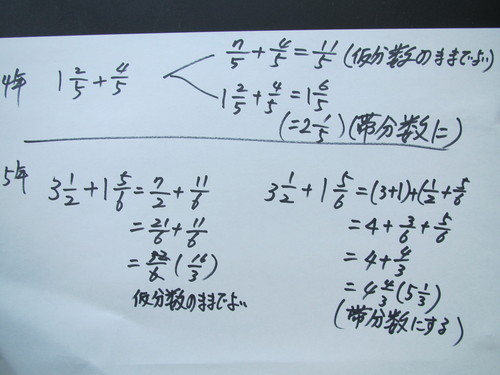 4年 1 2/5 + 4/5
7/5 + 4/5 = 11/5 (仮分数のままでよい)
1 2/5 + 4/5 = 1 6/5
(= 2 1/5) (帯分数に)
5年
3 1/2 + 1 5/6 = 7/2 + 11/6
= 21/6 + 11/6
= 32/6 (16/3)
仮分数のままでよい
3 1/2 + 1 5/6 = (3+1)+(1/2 + 5/6
= 4 + 3/6 + 5/6
= 4 + 4/3
= 4 4/3 (5 1/3)
(帯分数にする)